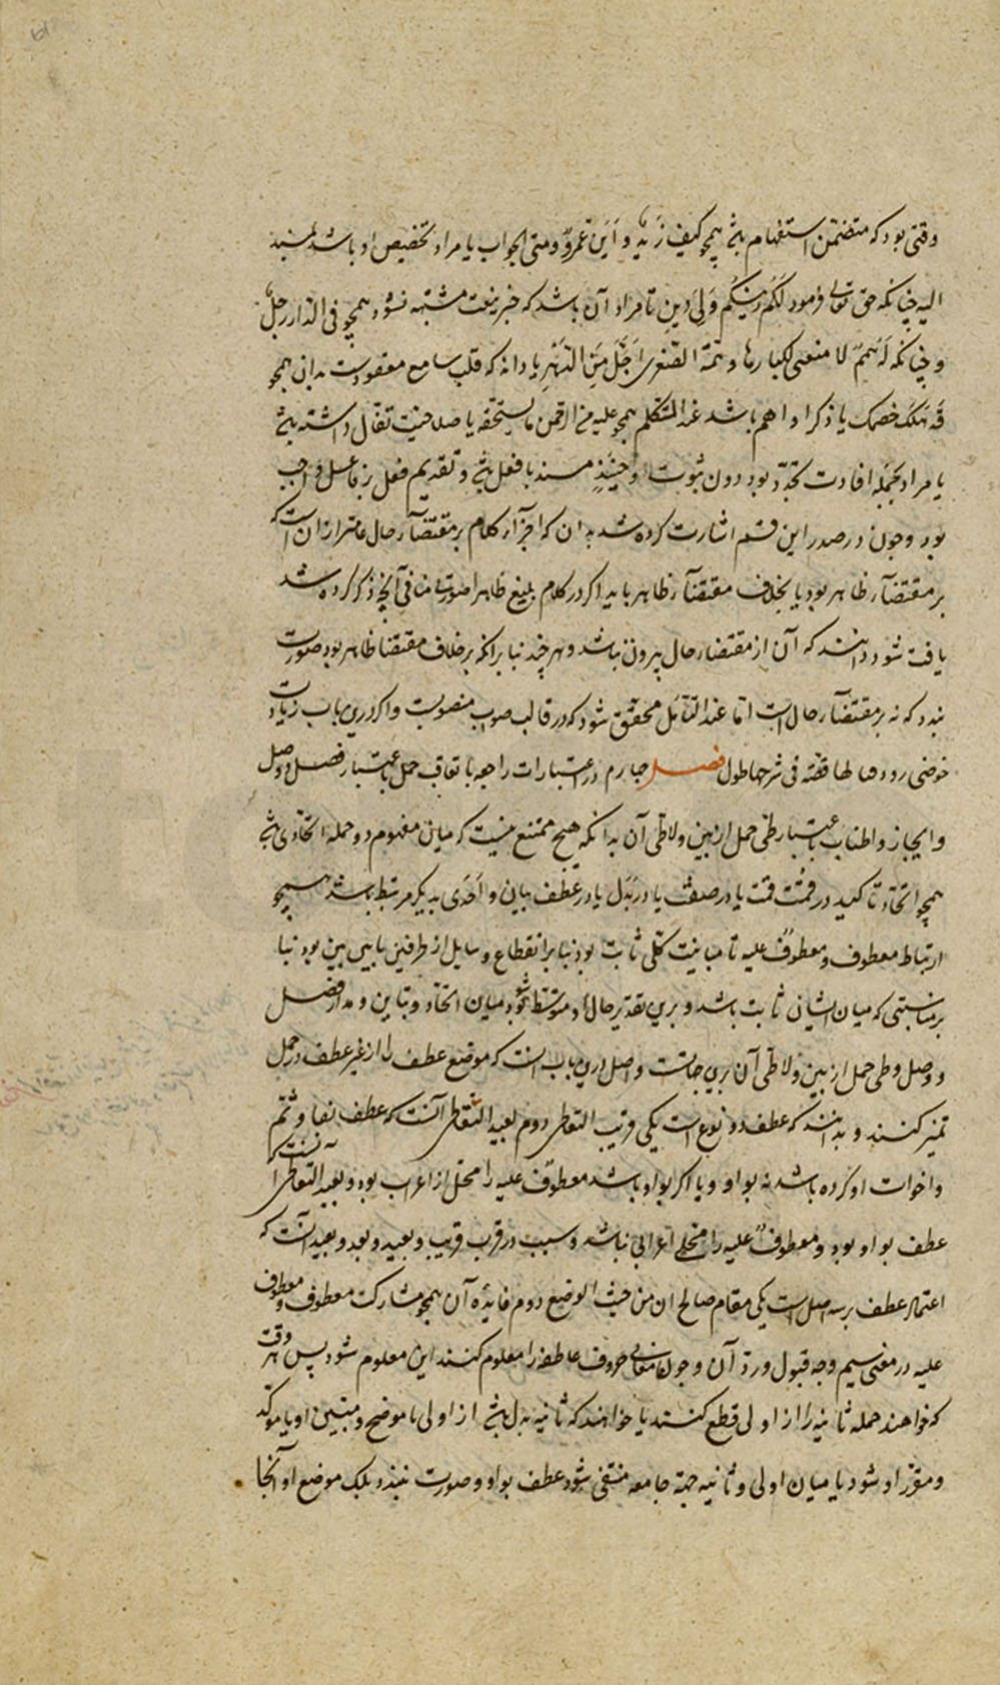 وقتی بود که متضمن استفهام باشد همچو کیف زید و این عمرو ومتی الجواب یا مراد تخصیص او باشد بمسند
الیه چنانکه حق تعالی فرمود لکم دینکم ولی دین تا مراد آن باشد که خبر بنعت مشتبه نشود همچو فی الدار رجل
و چنانکه له همم لا منتهی لکبارها و همته الصغری اجل من الدهر یا دانه که قلب سامع معقودست بدان همچو
قد هلک خصمک یا ذکر او اهم باشد عند المتکلم همچو علیه من الرحمن ما یستحقه یا صلاحیت تفال داشته باشد
یا مراد بجمله افادت تجدد بود دون ثبوت و حینئذ مسند با فعل باشد و تقدیم فعل بر فاعل واجب
بود وچون در صدر این قسم اشارت کرده شد بدان که اجزآء کلام بر مقتضآء حال عامتر از ان است که
بر مقتضآء ظاهر بود یا بخلاف مقتضآء ظاهر باید اکر در کلام بلیغ ظاهرا صورتی منافی آنچ ذکر کرده شد
یافت شود دانند که آن از مقتضاء حال بیرون نباشد و هر چند بنا برانکه بر خلاف مقتضا ظاهر بود صورت
بندد که نه بر مقتضآء حال است اما عند التأمل محقق شود که در قالب صواب منصوبست واکر درین باب زیادت
خوضی رود فیالها قصة فی شرحها طول فصل چهارم در اعتبارات راجعه با تعاقب جمل باعتبار فصل و وصل
و ایجاز و اطناب باعتبار طی جمل از بین ولا طی آن بدانکه هیچ ممتنع نیست که میان مفهوم دو جمله اتحادی باشد
همچو اتحاد تاکید در قمت قمت یا در صفت یا در بدل یا در عطف بیان و احدی بدیکر مرتبط باشد همچو
ارتباط معطوف و معطوف علیه تا مباینت کلی ثابت بود بنا بر انقطاع وسایل از طرفین یا بین بین بود بنا
بر مناسبتی که میان ایشان ثابت باشد و برین تقدیر حال او متوسط شود میان اتحاد و تباین و مدار فصل
و وصل و طی جمل از بین ولا طی آن برین جاست و اصل درین باب انست که موضع عطف را از غیر عطف در جمل
تمیز کنند و بدانند که عطف دو نوع است یکی قریب التعاطی دوم بعید التعاطی آنست که عطف بفا و ثم
و اخوات او کرده باشد نه بواو و یا اکر بواو باشد معطوف علیه را محل از اعراب بود و بعید التعاطی آنست که
عطف بواو بود و معطوف علیه را محل اعرابی نباشد و سبب در قرب قریب و بعید و بعد و بعید آنست که
اعتماد عطف بر سه اصل است یکی مقام صالح ان من حیث الوضع دوم فایده آن همچو مشارکت معطوف و معطوف
علیه در معنی سیم وجه قبول و رد آن و چون معانی حروف عاطفه را معلوم کنند این معلوم شود پس هر وقت
که خواهند جمله ثانیه را از اولی قطع کنند یا خواهند که ثانیه بدل باشد از اولی یا موضح و مبین او یا موکد
و مقرر او شود یا میان اولی و ثانیه جهة جامعه منتفی شود عطف بواو صورت نبندد بلک موضع او آنجا